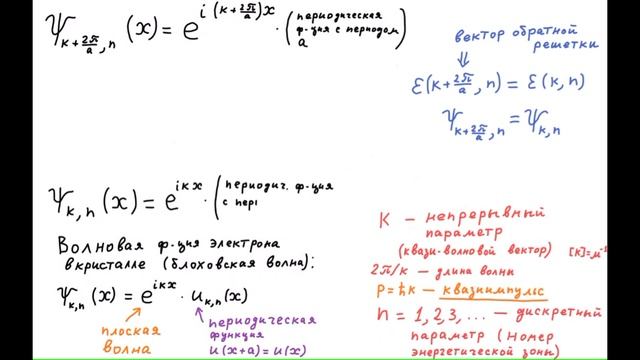 Ψ_{k+2π/a, n}(x) = e^{i(k+2π/a)x} · (периодическая
ф-ция с периодом
a)
вектор обратной
решетки
⇓
ε(k+2π/a, n) = ε(k, n)
Ψ_{k+2π/a, n} = Ψ_{k,n}
Ψ_{k,n}(x) = e^{ikx} · (периодич. ф-ция
с пер
Волновая ф-ция электрона
в кристалле (блоховская волна):
Ψ_{k,n}(x) = e^{ikx} · u_{k,n}(x)
плоская
волна
периодическая
функция
u(x+a) = u(x)
K — непрерывный
параметр
(квази-волновой вектор) [k]=м⁻¹
2π/k — длина волны
P=ħk — квазиимпульс
n = 1,2,3,... — дискретный
параметр (номер
энергетической зоны)